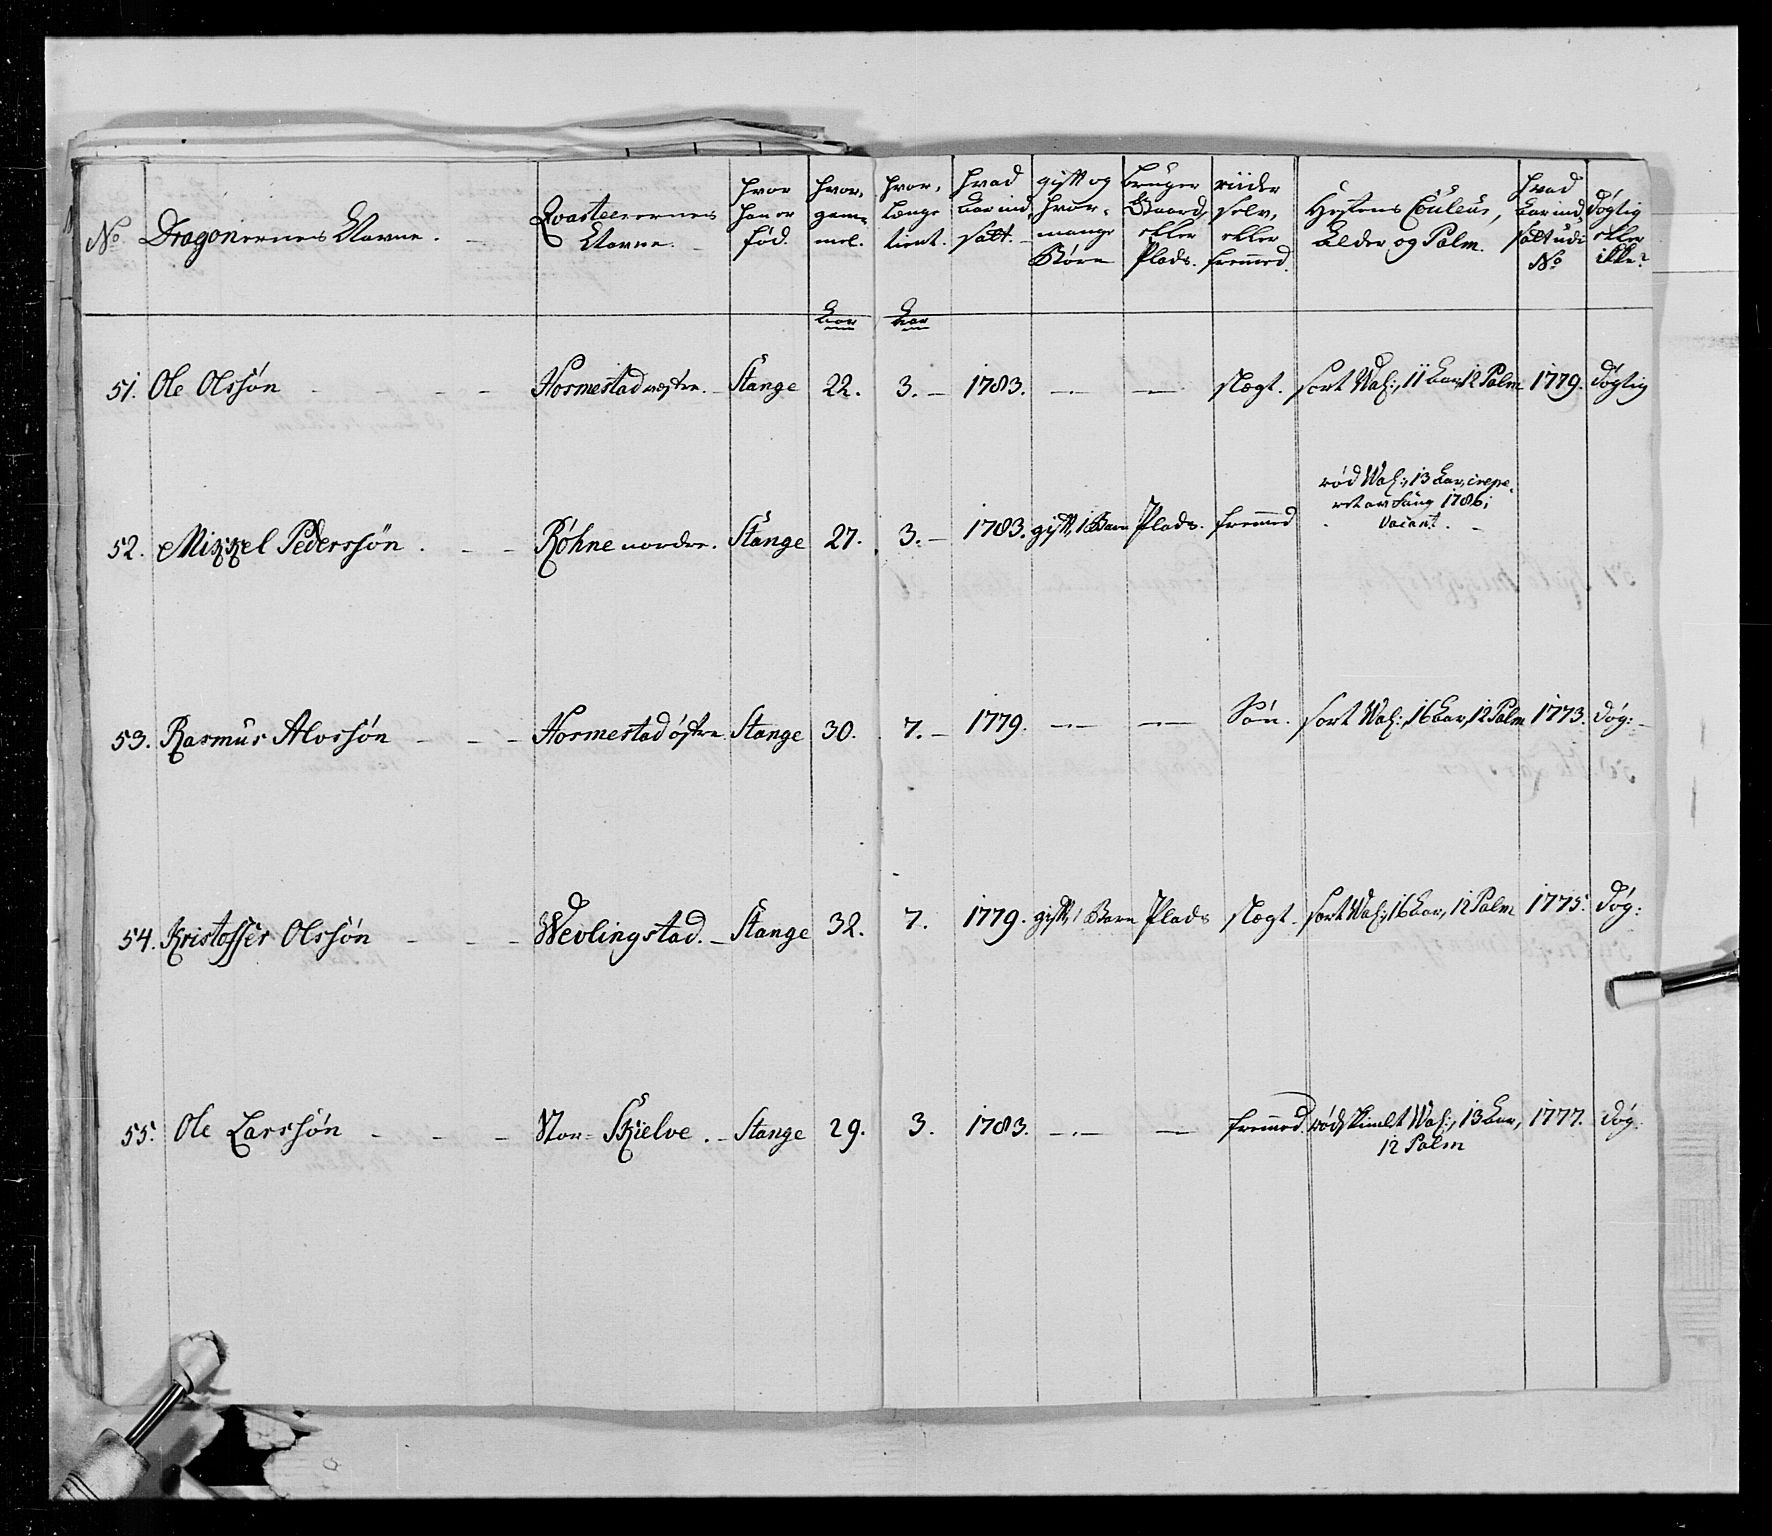 No. Dragonernes Navne. Qvarteerernes Navne. hvor han er fød. hvor gam- mel. hvor længe tient. hvad Aar ind satt. gift og hvor- mange Børn bruger Gaard, eller Plads. riider selv, eller fremmed. Hestens Couleur, Alder og Palm. hvad Aar ind satt udi No. døgtig eller ikke?
Aar Aar
51. Ole Olssøn - - - - Hormestad vestre. - Stange 22. 3. - 1783. -.- - slægt. sort Wal:, 11 Aar, 12 Palm 1779. døgtig
52. Mikkel Pederssøn. - - Røhne nordre. Stange 27. 3. - 1783. gift, 1 Barn Plads. fremmed rød Wal:, 13 Aar, crepe-
ret
1786;
vacant. -
53. Rasmus Alvssøn - - - Hormestad østre. Stange 30. 7. - 1779. -.- -.- Søn. sort Wal:, 16 Aar, 12 Palm 1773. døg: -
54. Kristoffer Olssøn - - - Wevlingstad. - Stange 32. 7. 1779. gift, 1 Barn Plads slægt. sort Wal:, 16 Aar, 12 Palm 1775. døg:
55. Ole Larssøn - - - Nor- Skielve. - Stange 29. 3. 1783. -.- - fremmed. rødskimlt Wal:, 13 Aar, 1777. døg:
12 Palm